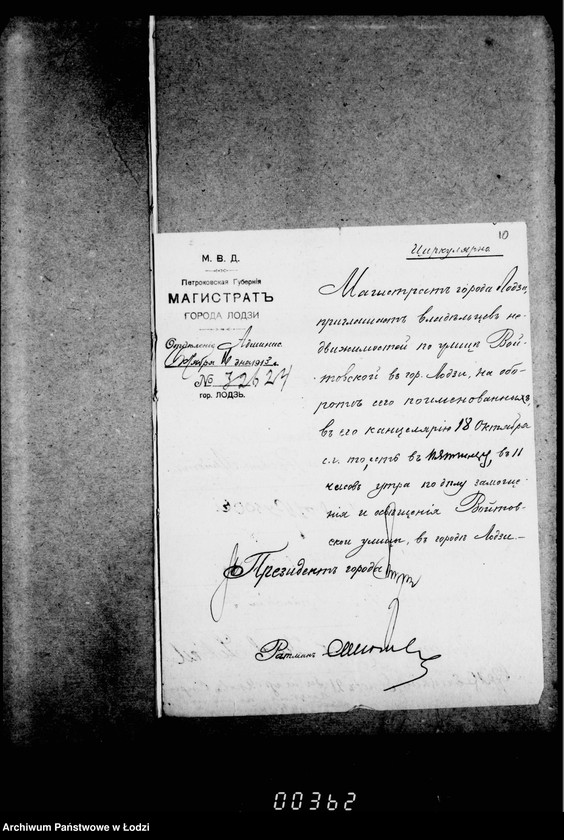 10
Циркулярно
М. В. Д.
Петроковская Губернія
МАГИСТРАТЪ
ГОРОДА ЛОДЗИ
Отдѣленіе Админис.
Октября дня 1913 г.
№ 32624
гор. ЛОДЗЬ.
Магистратъ города Лодзи,
приглашаетъ владѣльцевъ не-
движимостей по улицѣ Вой-
товской въ гор. Лодзи, на обо-
ротѣ сего поименованныхъ,
въ его канцелярію 18 Октября
с.г. то есть въ пятницу, въ 11
часовъ утра по дѣлу замоще-
нія и освѣщенія Войтов-
ской улицы, въ городѣ Лодзи.—
Президентъ города
Ратманъ
00362
Archiwum Państwowe w Łodzi